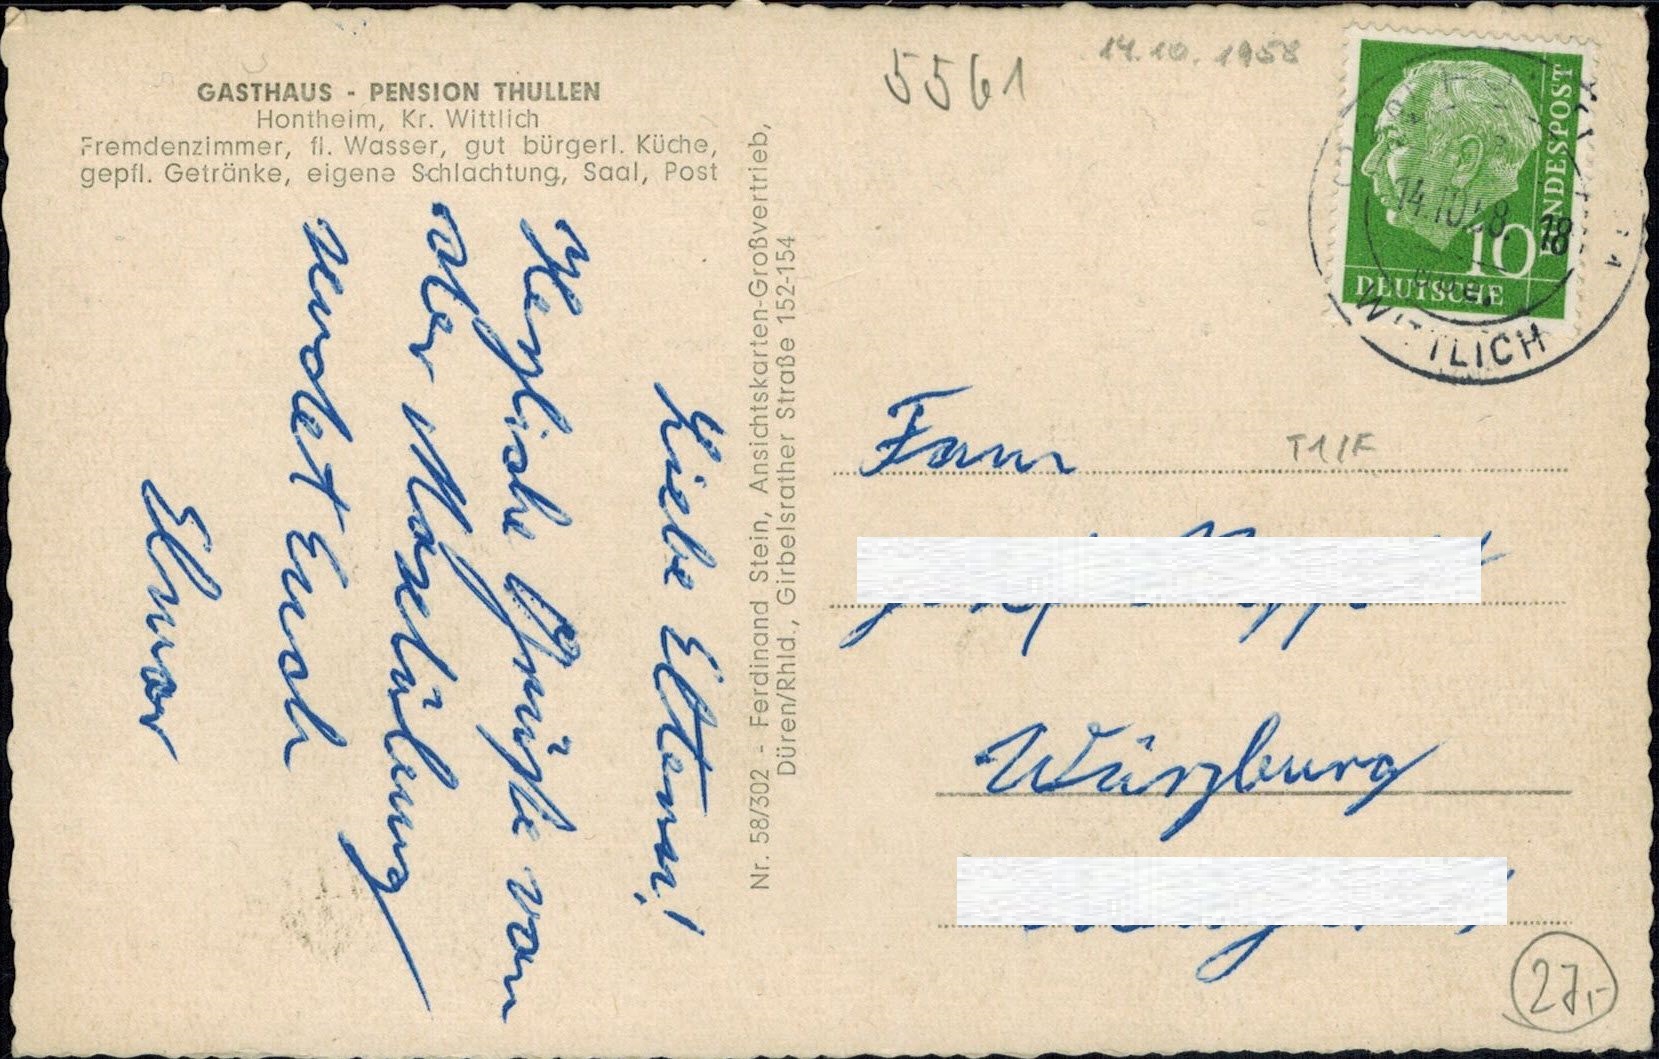 GASTHAUS - PENSION THULLEN
Hontheim, Kr. Wittlich
Fremdenzimmer, fl. Wasser, gut bürgerl. Küche,
gepfl. Getränke, eigene Schlachtung, Saal, Post
Liebe Eltern!
Herzliche Grüße von
der Moselübung
sendet Euch
Elmar
Nr. 58/302 - Ferdinand Stein, Ansichtskarten-Großvertrieb,
Düren/Rhld., Girbelsrather Straße 152-154
5561
14.10.1958
DEUTSCHE
BUNDESPOST
10
14.10.58. 18
WITTLICH
T1/F
Fam
Würzburg
27,-